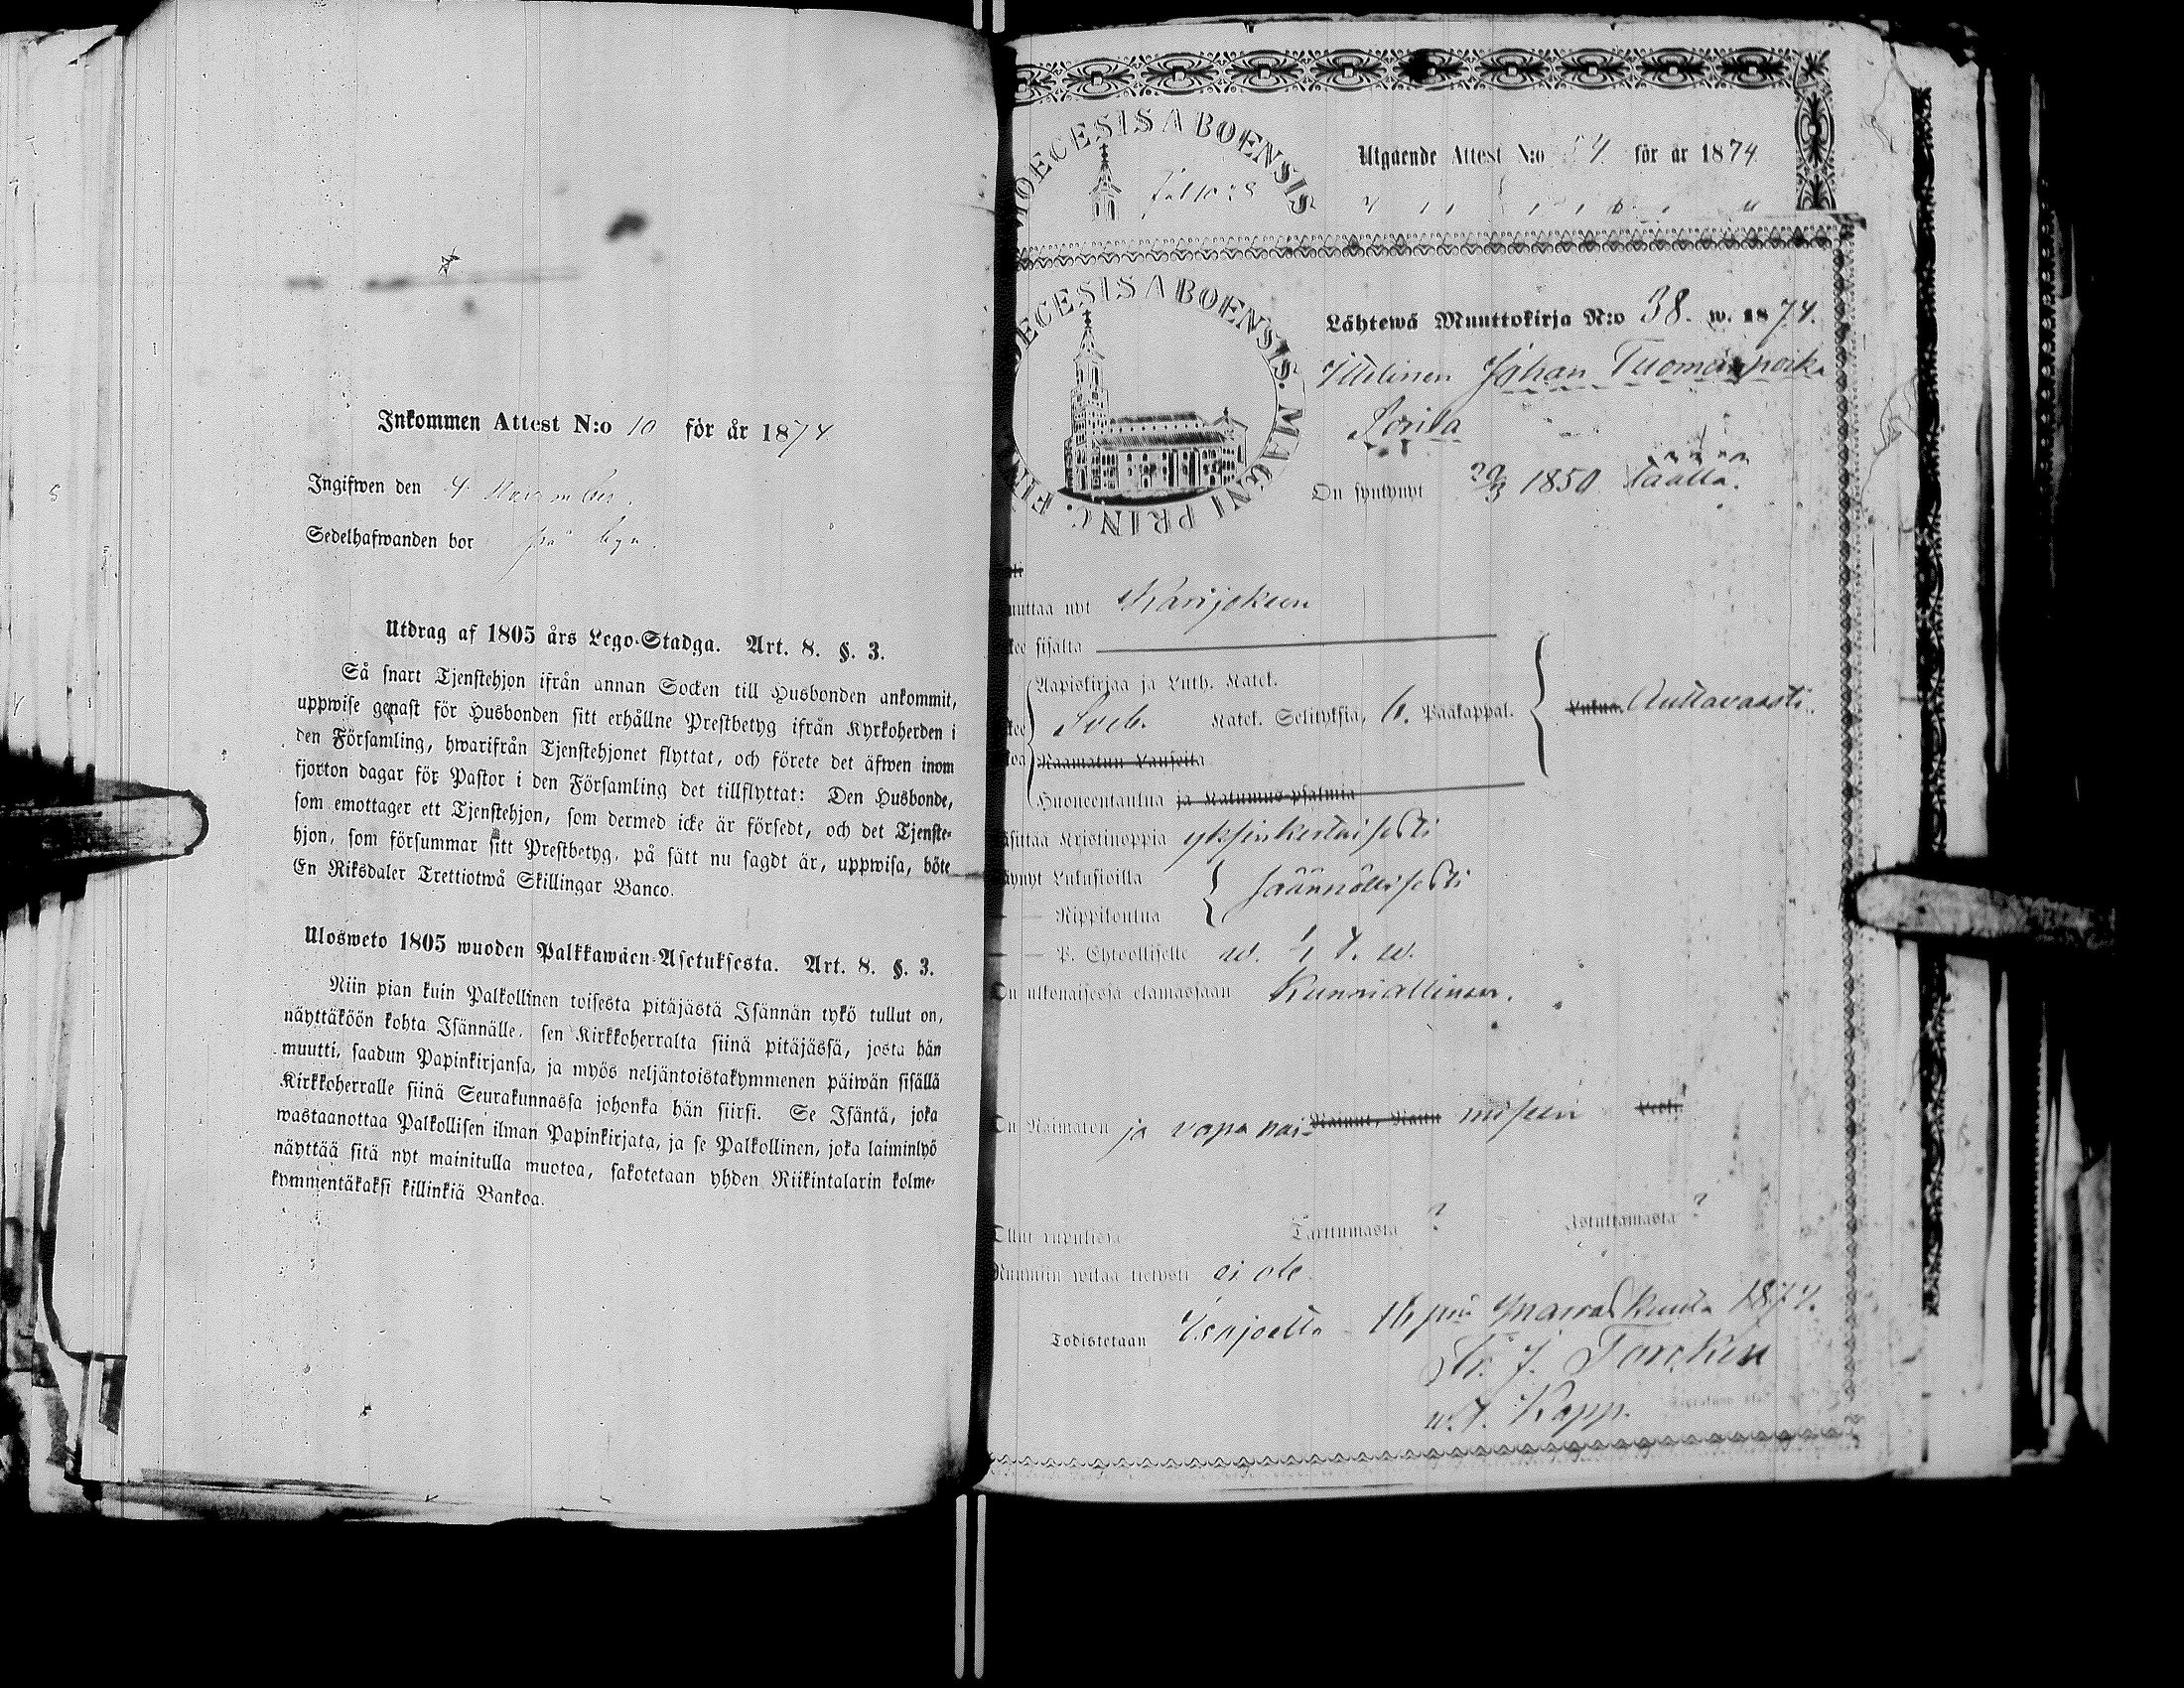 Inkommen Attest N:o 10 för år 1874.
Ingifwen den 4 November.
Sedelhafwanden bor
Utdrag af 1805 års Lego-Stadga. Art. 8. §. 3.
Så snart Tjenstehjon ifrån annan Socken till Husbonden ankommit,
uppwise genast för Husbonden sitt erhållne Prestbetyg ifrån Kyrkoherden i
den Församling, hwarifrån Tjenstehjonet flyttat, och förete det äfwen inom
fjorton dagar för Pastor i den Församling det tillflyttat: Den Husbonde,
som emottager ett Tjenstehjon, som dermed icke är försedt, och det Tjenste-
hjon, som försummar sitt Prestbetyg, på sätt nu sagdt är, uppwisa, böte
En Riksdaler Trettiotwå Skillingar Banco.
Ulosweto 1805 wuoden Palkkawäen-Asetuksesta. Art. 8. §. 3.
Niin pian kuin Palkollinen toisesta pitäjästä Isännän tykö tullut on,
näyttäköön kohta Isännälle, sen Kirkkoherralta siinä pitäjässä, josta hän
muutti, saadun Papinkirjansa, ja myös neljäntoistakymmenen päiwän sisällä
Kirkkoherralle siinä Seurakunnassa johonka hän siirsi. Se Isäntä, joka
wastaanottaa Palkollisen ilman Papinkirjata, ja se Palkollinen, joka laiminlyö
näyttää sitä nyt mainitulla muotoa, sakotetaan yhden Riikintalarin kolme-
kymmentäkaksi killinkiä Bankoa.
DIOECESIS ABOENSIS
Utgaende Attest N:o 54. för år 1874.
DIOECESIS ABOENSIS. MAGNI PRINC. FIN
Lähtewä Muuttokirja N:o 38. w. 1874.
Itllinen Johan Tuomaanpoika
Sorila
On syntynyt 20/3 1850 täällä.
Muuttaa nyt Karijokeen
Lukee sisältä
Aapiskirjaa ja Luth. Katek.
Sveb. Katek. Selityksiä, 6. Pääkappal. Auttavaasti.
Raamatun Lauseita
Huoneentaulua ja Katumus-psalmia
Käsittää Kristinoppia yksinkertaisesti
Käynyt Lukusioilla säännöllisesti
— — Rippikoulua
— — P. Ehtoollisella
On ulkonaisessa elämässään Kunniallinen.
On Naimaton ja vapa nai- Nainut, Naitu miseen Leski.
Ollut rupulissa Tarttumasta ? Istuttamasta ?
Ruumiin wikaa tietysti ei ole.
Todistetaan Isojoella 16 p:nä Marraskuuta 1874.
Fr. J. Forckin
w.t. Kapp.